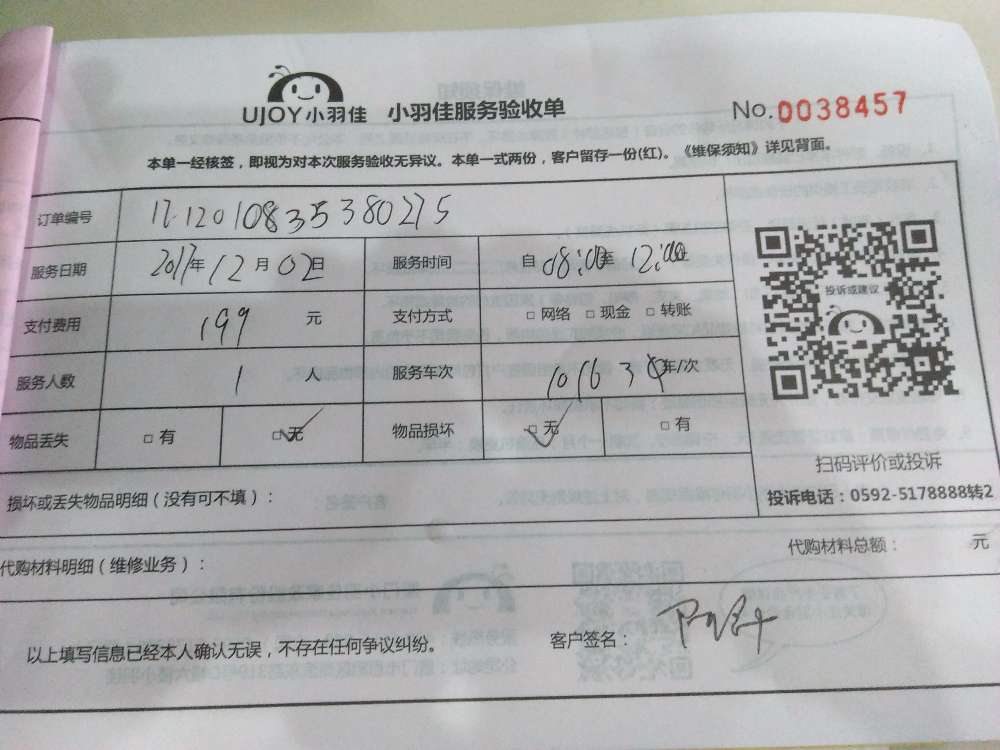 UJOY小羽佳 小羽佳服务验收单 No.0038457
本单一经核签，即视为对本次服务验收无异议。本单一式两份，客户留存一份(红)。《维保须知》详见背面。
订单编号 1712010835380275
服务日期 2017年12月02日 服务时间 自08:00至12:00
支付费用 199 元 支付方式 □网络 □现金 □转账
投诉或建议
服务人数 1 人 服务车次 101634 车/次
物品丢失 □有 □无 物品损坏 □无 □有
扫码评价或投诉
损坏或丢失物品明细（没有可不填）：
投诉电话：0592-5178888转2
代购材料明细（维修业务）：
代购材料总额： 元
以上填写信息已经本人确认无误，不存在任何争议纠纷。
客户签名：